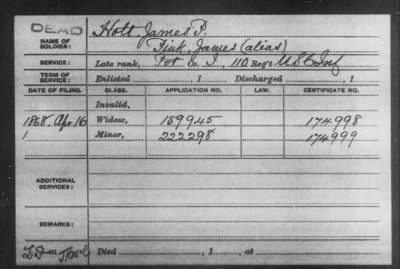 DEAD
NAME OF SOLDIER: Holt, James P.
Fink, James (alias)
SERVICE: Late rank, Pvt Co. I, 110 Reg't U.S.C. Inf
TERM OF SERVICE: Enlisted , 1 Discharged , 1
DATE OF FILING. CLASS. APPLICATION NO. LAW. CERTIFICATE NO.
Invalid,
1868. Apr. 16 Widow, 159945 174998
Minor, 222298 174999
ADDITIONAL SERVICES:
REMARKS:
Died , 1 , at